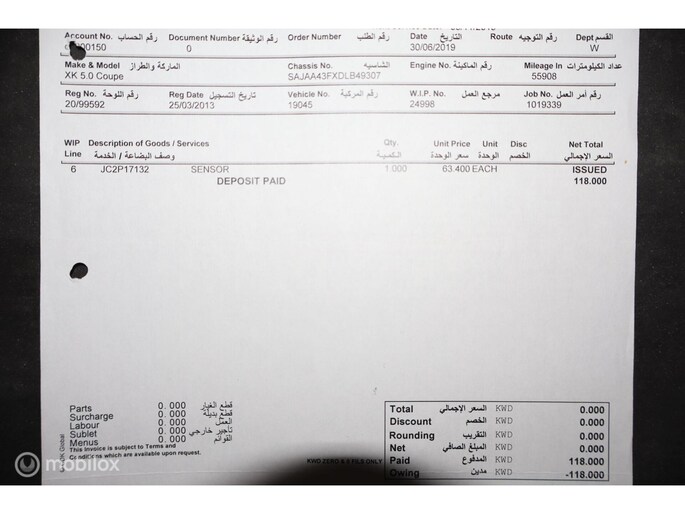 Account No. رقم الحساب Document Number رقم الوثيقة Order Number رقم الطلب Date التاريخ Route رقم التوجيه Dept القسم
00150 0 30/06/2019 W
Make & Model الماركة والطراز Chassis No. الشاسيه Engine No. رقم الماكينة Mileage In عداد الكيلومترات
XK 5.0 Coupe SAJAA43FXDLB49307 55908
Reg No. رقم اللوحة Reg Date تاريخ التسجيل Vehicle No. رقم المركبة W.I.P. No. مرجع العمل Job No. رقم أمر العمل
20/99592 25/03/2013 19045 24998 1019339
WIP Description of Goods / Services Qty. Unit Price Unit Disc Net Total
Line وصف البضاعة / الخدمة الكمية سعر الوحدة الوحدة الخصم السعر الإجمالي
6 JC2P17132 SENSOR 1.000 63.400 EACH ISSUED
DEPOSIT PAID 118.000
Parts 0.000 قطع الغيار
Surcharge 0.000 قطع بديلة
Labour 0.000 العمل
Sublet 0.000 تأجير خارجي
Menus 0.000 القوائم
This invoice is subject to Terms and
Conditions which are available upon request.
KWD ZERO & 0 FILE ONLY
Total السعر الإجمالي KWD 0.000
Discount الخصم KWD 0.000
Rounding التقريب KWD 0.000
Net المبلغ الصافي KWD 0.000
Paid المدفوع KWD 118.000
Owing مدين KWD -118.000
mobilox